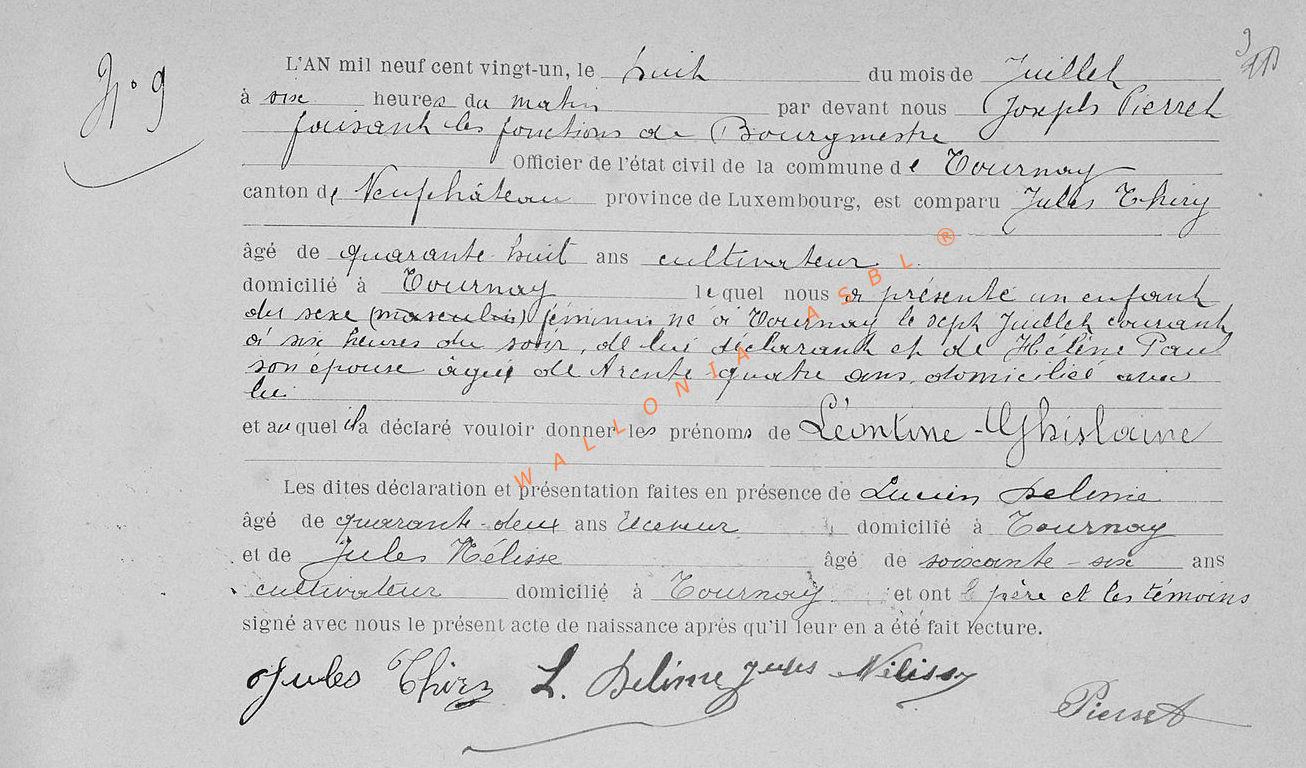 N° 9
L'AN mil neuf cent vingt-un, le huit du mois de Juillet
à six heures du matin par devant nous Joseph Pierret
faisant les fonctions de Bourgmestre
Officier de l'état civil de la commune de Tournay
canton de Neufchâteau province de Luxembourg, est comparu Jules Thiry
âgé de quarante-huit ans cultivateur
domicilié à Tournay lequel nous a présenté un enfant
du sexe (masculin) féminin né à Tournay le sept Juillet courant,
à six heures du soir, de lui déclarant et de Hélène Paul
son épouse âgée de trente-quatre ans, domiciliée avec
lui
et auquel il a déclaré vouloir donner les prénoms de Léontine-Ghislaine
Les dites déclaration et présentation faites en présence de Lucien Delime
âgé de quarante-deux ans receveur domicilié à Tournay
et de Jules Nélisse âgé de soixante-six ans
cultivateur domicilié à Tournay et ont le père et les témoins
signé avec nous le présent acte de naissance après qu'il leur en a été fait lecture.
Jules Thiry L. Delime Jules Nélisse
Pierret
WALLONIA ASBL ®